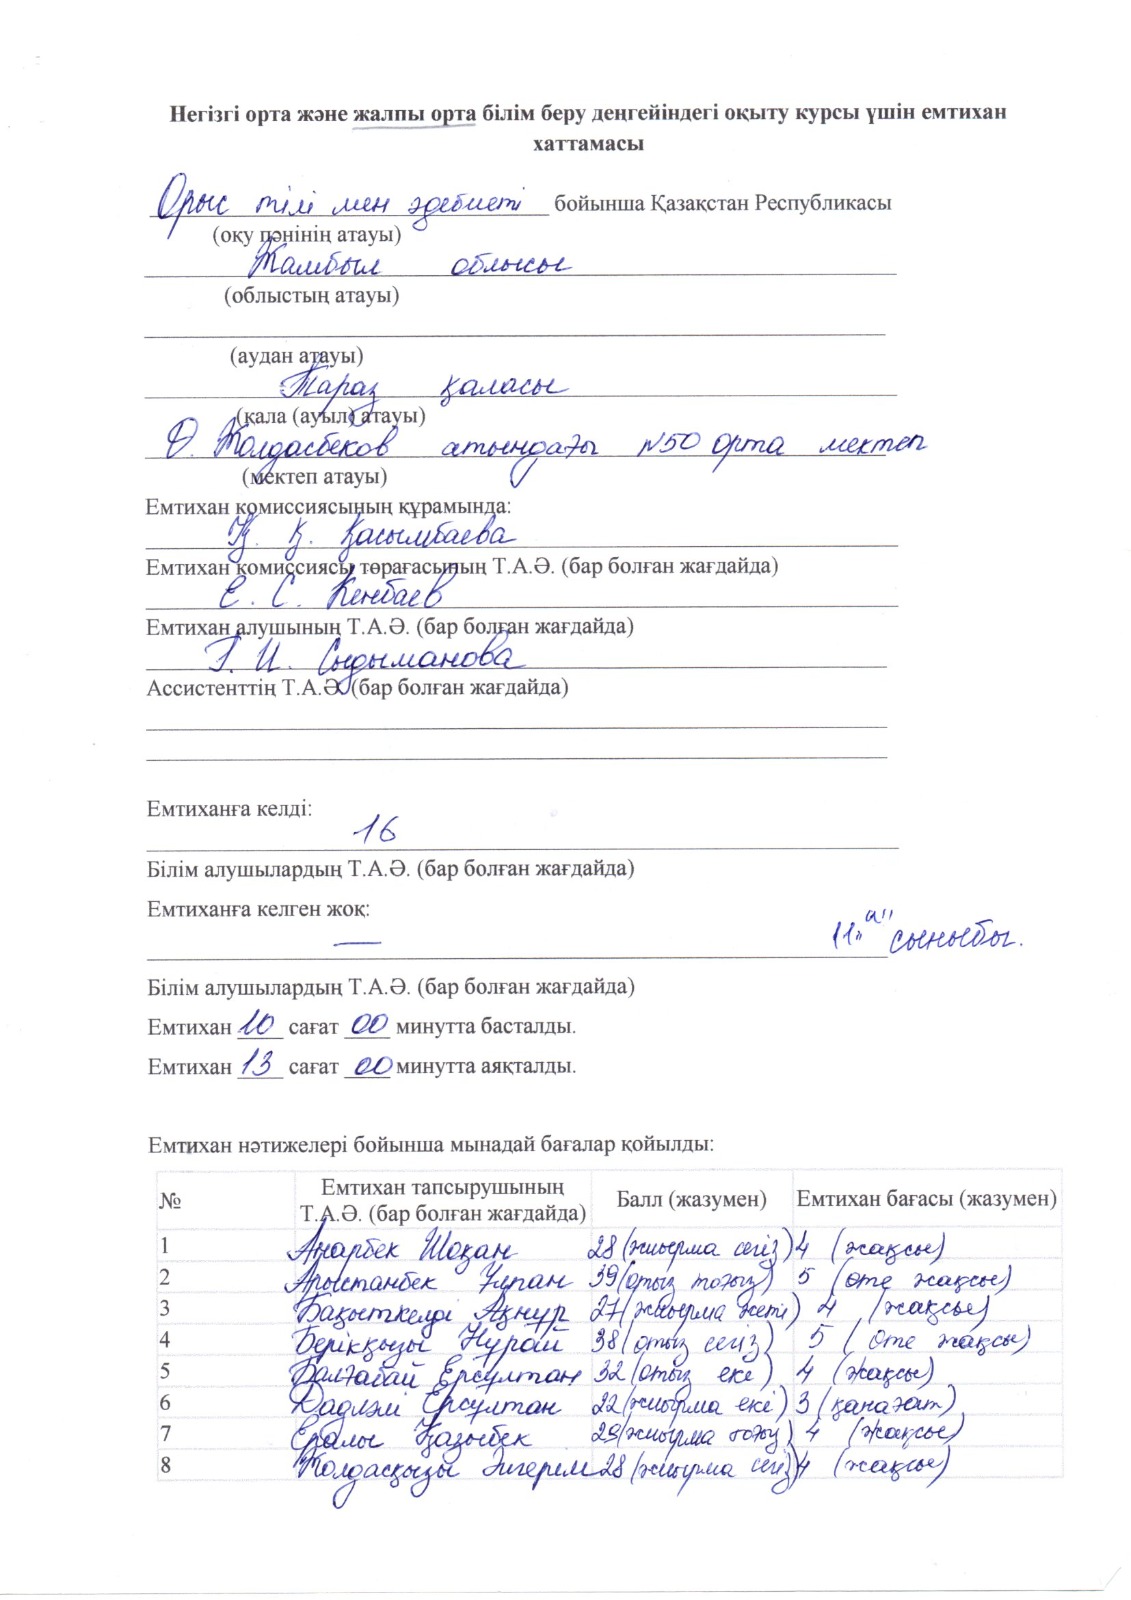 Негізгі орта және жалпы орта білім беру деңгейіндегі оқыту курсы үшін емтихан
хаттамасы
Орыс тілі мен әдебиеті бойынша Қазақстан Республикасы
(оқу пәнінің атауы)
Жамбыл облысы
(облыстың атауы)
(аудан атауы)
Тараз қаласы
(қала (ауыл) атауы)
Ө. Жолдасбеков атындағы №50 орта мектеп
(мектеп атауы)
Емтихан комиссиясының құрамында:
Қ. Қ. Қасымбаева
Емтихан комиссиясы төрағасының Т.А.Ә. (бар болған жағдайда)
Е. С. Кенбаев
Емтихан алушының Т.А.Ә. (бар болған жағдайда)
Г. И. Сыдыманова
Ассистенттің Т.А.Ә. (бар болған жағдайда)
Емтиханға келді:
16
Білім алушылардың Т.А.Ә. (бар болған жағдайда)
Емтиханға келген жоқ:
— 11 "а" сыныбы.
Білім алушылардың Т.А.Ә. (бар болған жағдайда)
Емтихан 10 сағат 00 минутта басталды.
Емтихан 13 сағат 00 минутта аяқталды.
Емтихан нәтижелері бойынша мынадай бағалар қойылды:
№ Емтихан тапсырушының Т.А.Ә. (бар болған жағдайда) Балл (жазумен) Емтихан бағасы (жазумен)
1 Анарбек Шоқан 28 (жиырма сегіз) 4 (жақсы)
2 Арыстанбек Ұлпан 39 (отыз тоғыз) 5 (өте жақсы)
3 Бақыткелді Ақнұр 27 (жиырма жеті) 4 (жақсы)
4 Берікқызы Нұрай 38 (отыз сегіз) 5 (өте жақсы)
5 Балғабай Ерсұлтан 32 (отыз екі) 4 (жақсы)
6 Дадлэм Ерсұлтан 22 (жиырма екі) 3 (қанағат)
7 Ералы Қазыбек 29 (жиырма тоғыз) 4 (жақсы)
8 Жолдасқызы Әйгерім 28 (жиырма сегіз) 4 (жақсы)